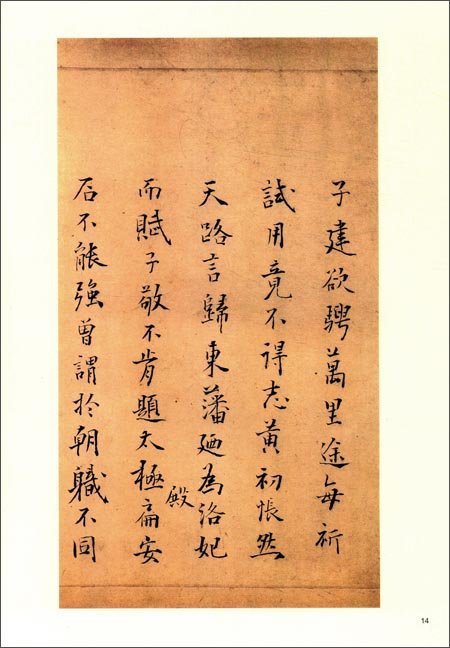 子建欲騁萬里途每祈
試用竟不得志黄初悵然
天路言歸東藩廼為洛妃
而賦子敬不肯題太極殿扁安
后不能強曾謂於朝軄不同
14